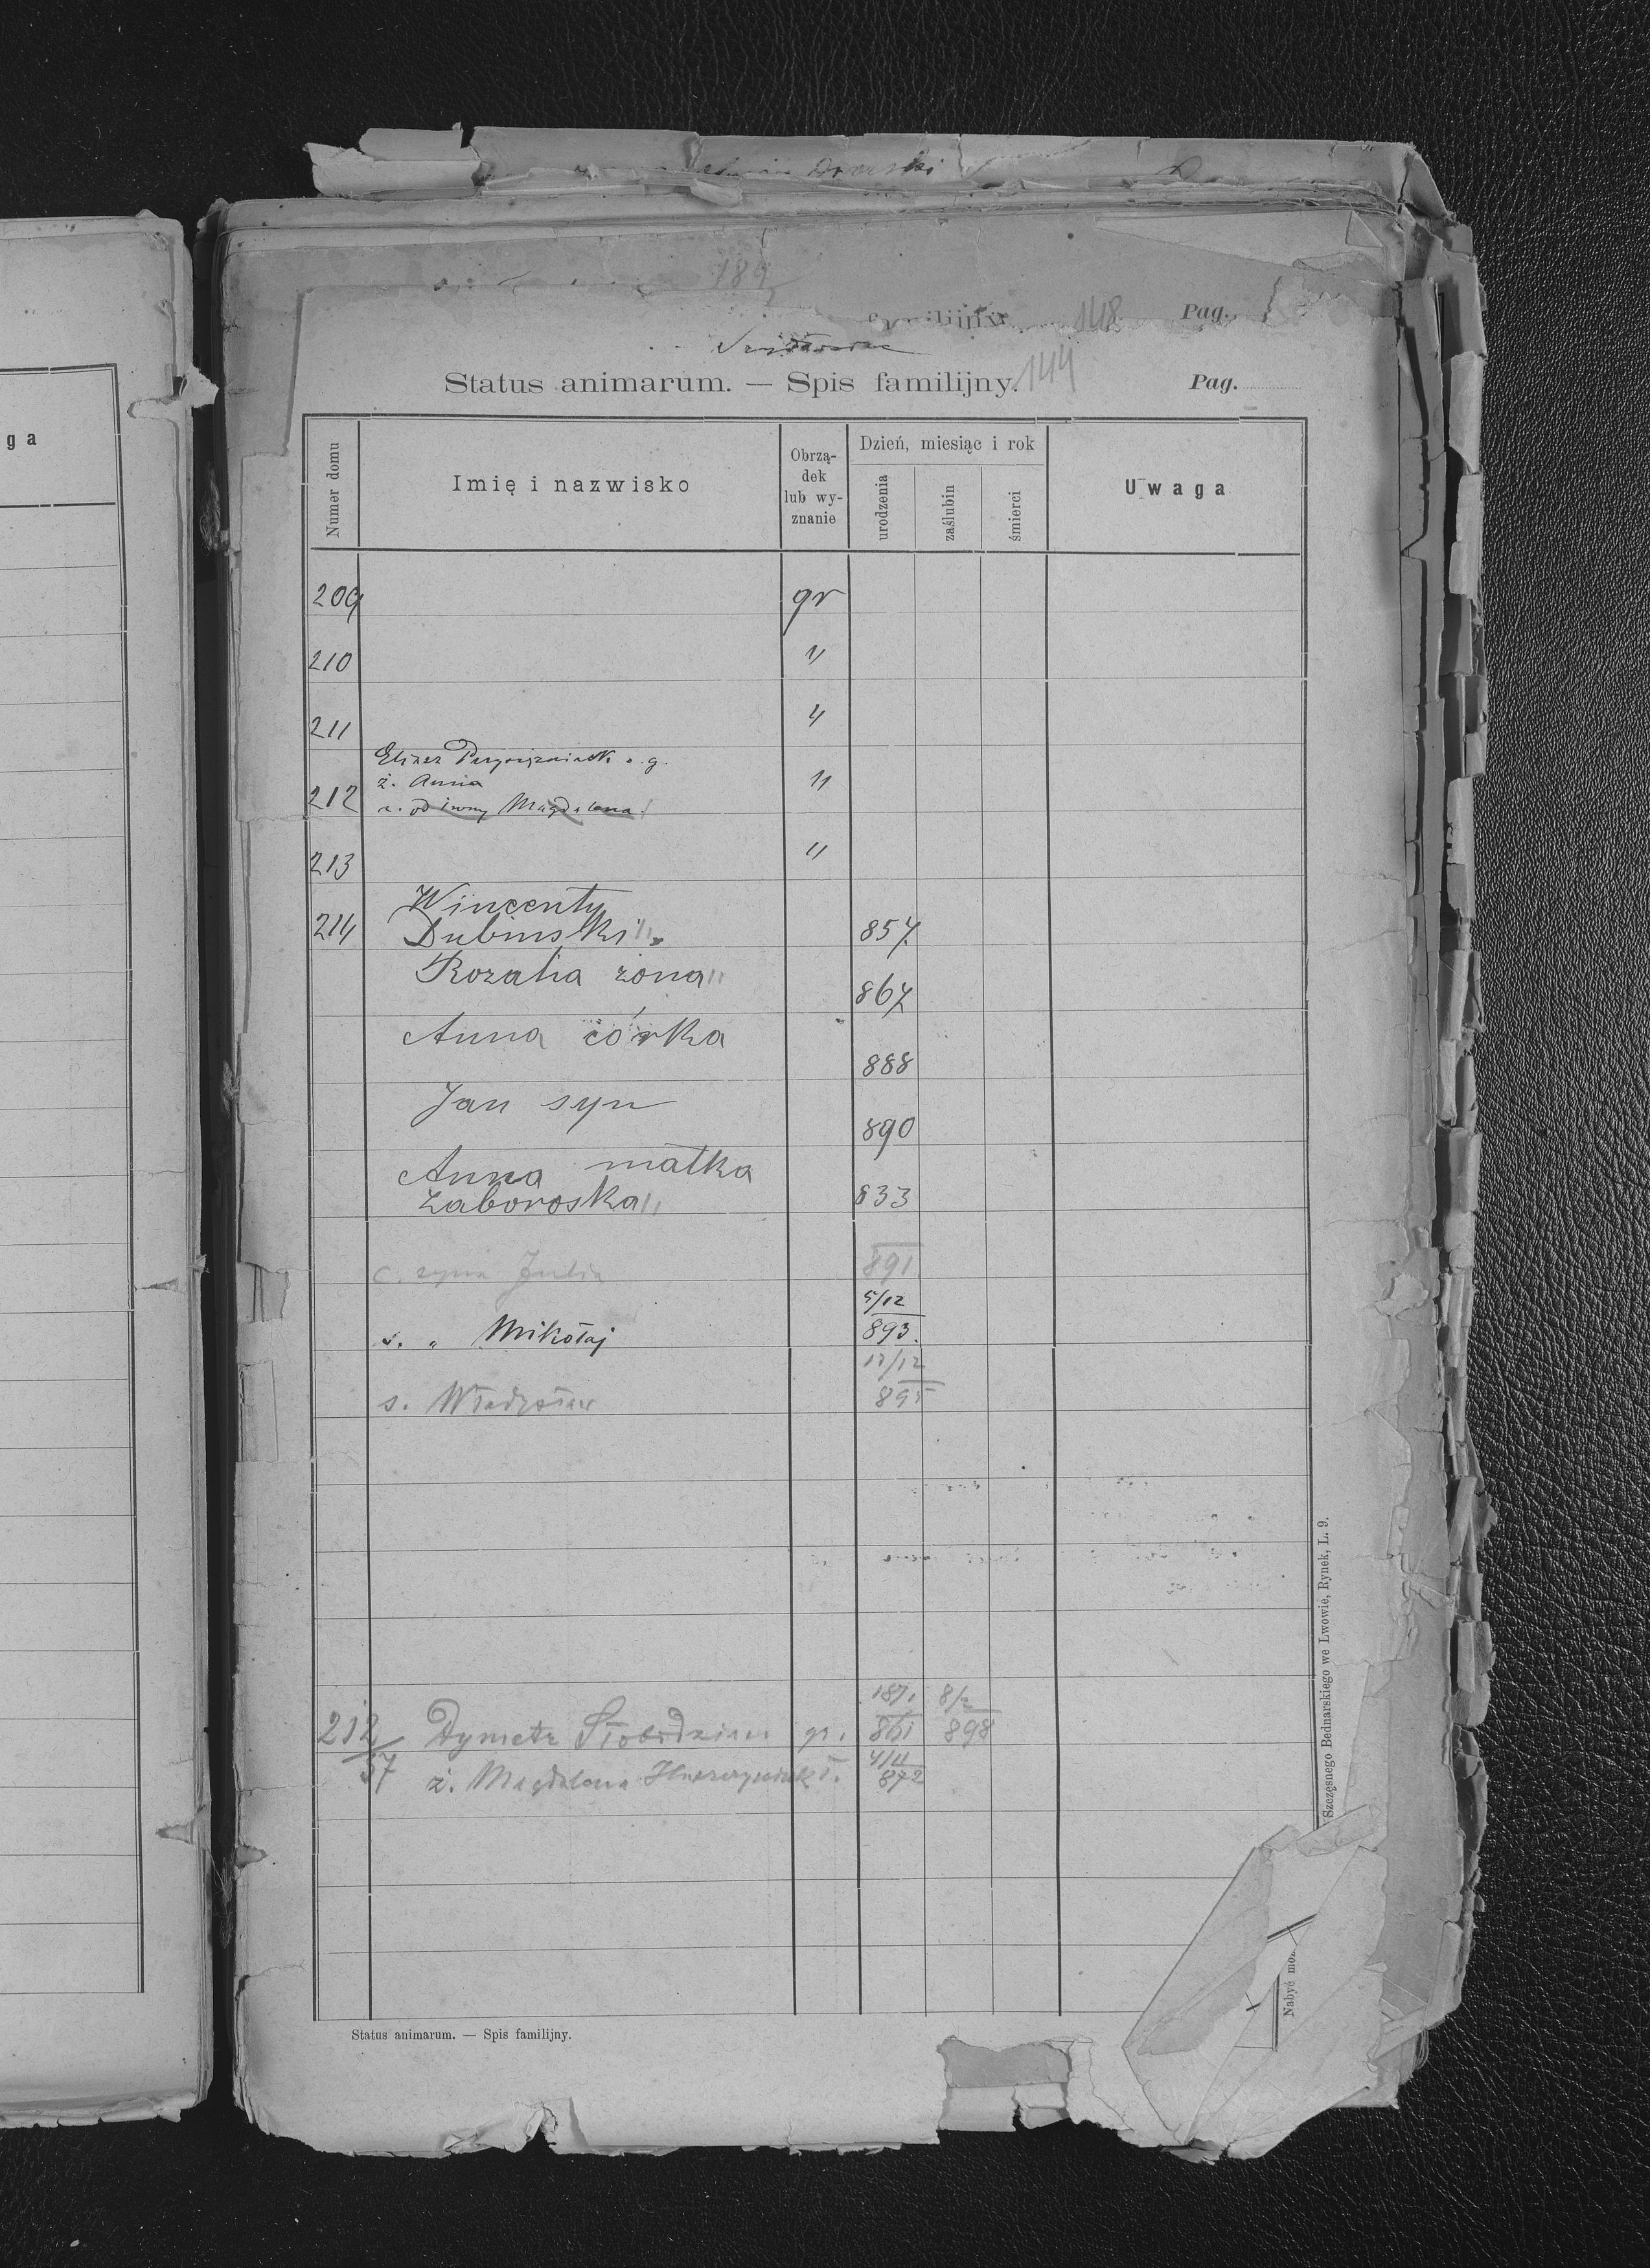 189
familijny 148 Pag.
Status animarum. — Spis familijny. 144 Pag.
ga
Numer domu
Imię i nazwisko
Obrzą-
dek
lub wy-
znanie
Dzień, miesiąc i rok
urodzenia
zaślubin
śmierci
Uwaga
209 gr
210 "
211 "
ż. Anna
212 Magdalena "
213 "
Wincenty
214 Dubinski 857.
Rozalia żona 867
Anna córka 888
Jan syn 890
Anna matka
Zaboroska 833
c. syna Julia 891
5/12
s. " Mikołaj 893.
12/12
s. Władysław 895
1871 8/2
212 Dymetr Słobodzian gr. 861 898
4/11
57 ż. Magdalena 872
Szczęsnego Bednarskiego we Lwowie, Rynek, L. 9.
Nabyć mo
Status animarum. — Spis familijny.